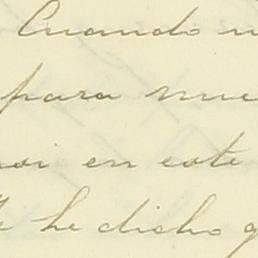 Cuando
para nue
en este
he dicho q